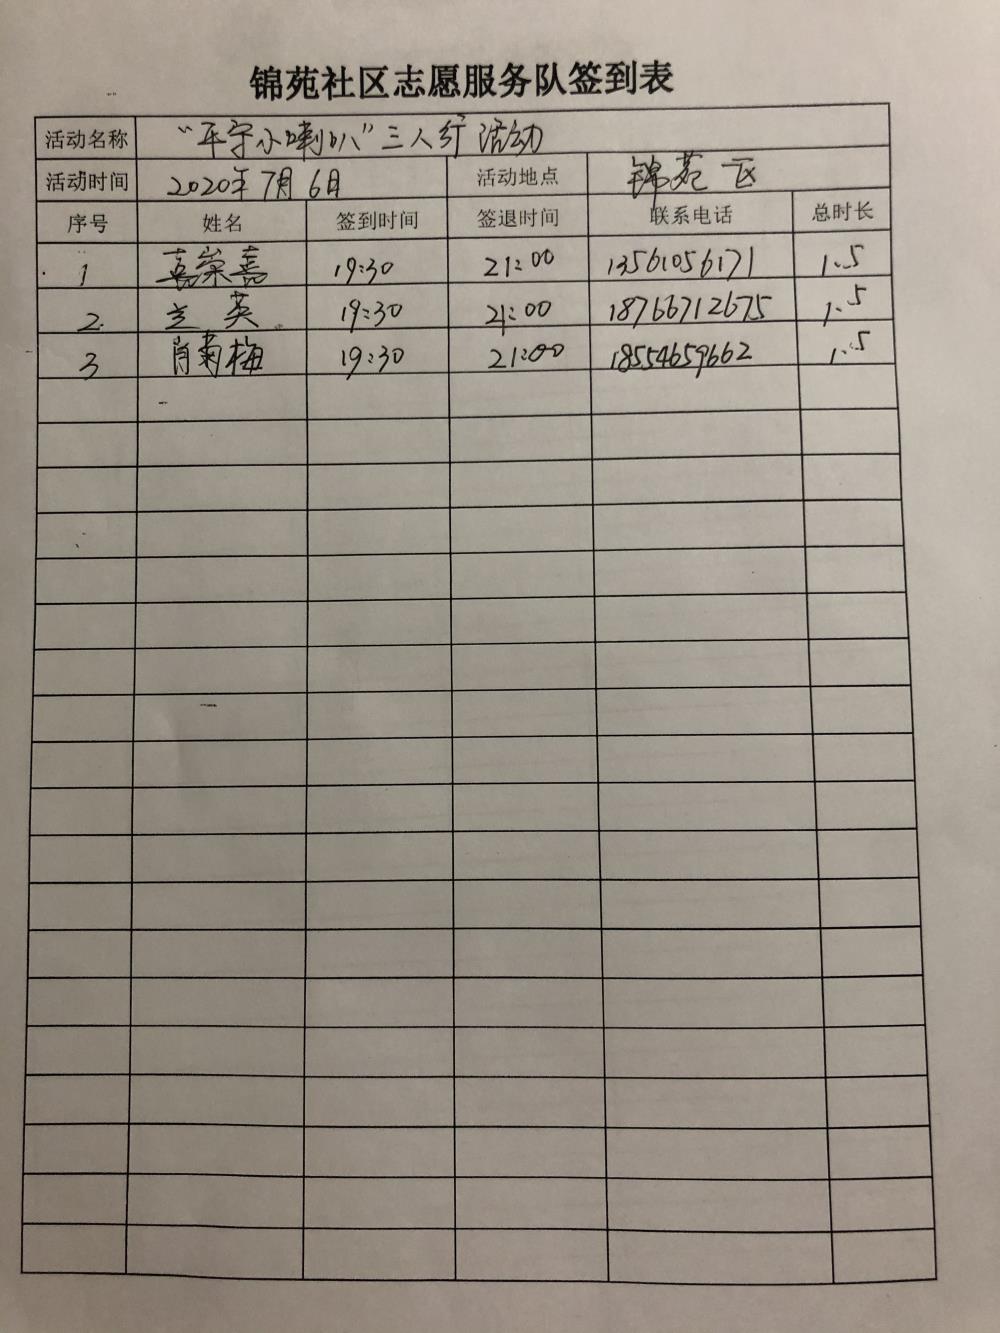 锦苑社区志愿服务队签到表
活动名称 “平安小喇叭”三人行活动
活动时间 2020年7月6日 活动地点 锦苑 区
序号 姓名 签到时间 签退时间 联系电话 总时长
1 19:30 21:00 13561056171 1.5
2. 英 19:30 21:00 18766712675 1.5
3 肖菊梅 19:30 21:00 18554659662 1.5